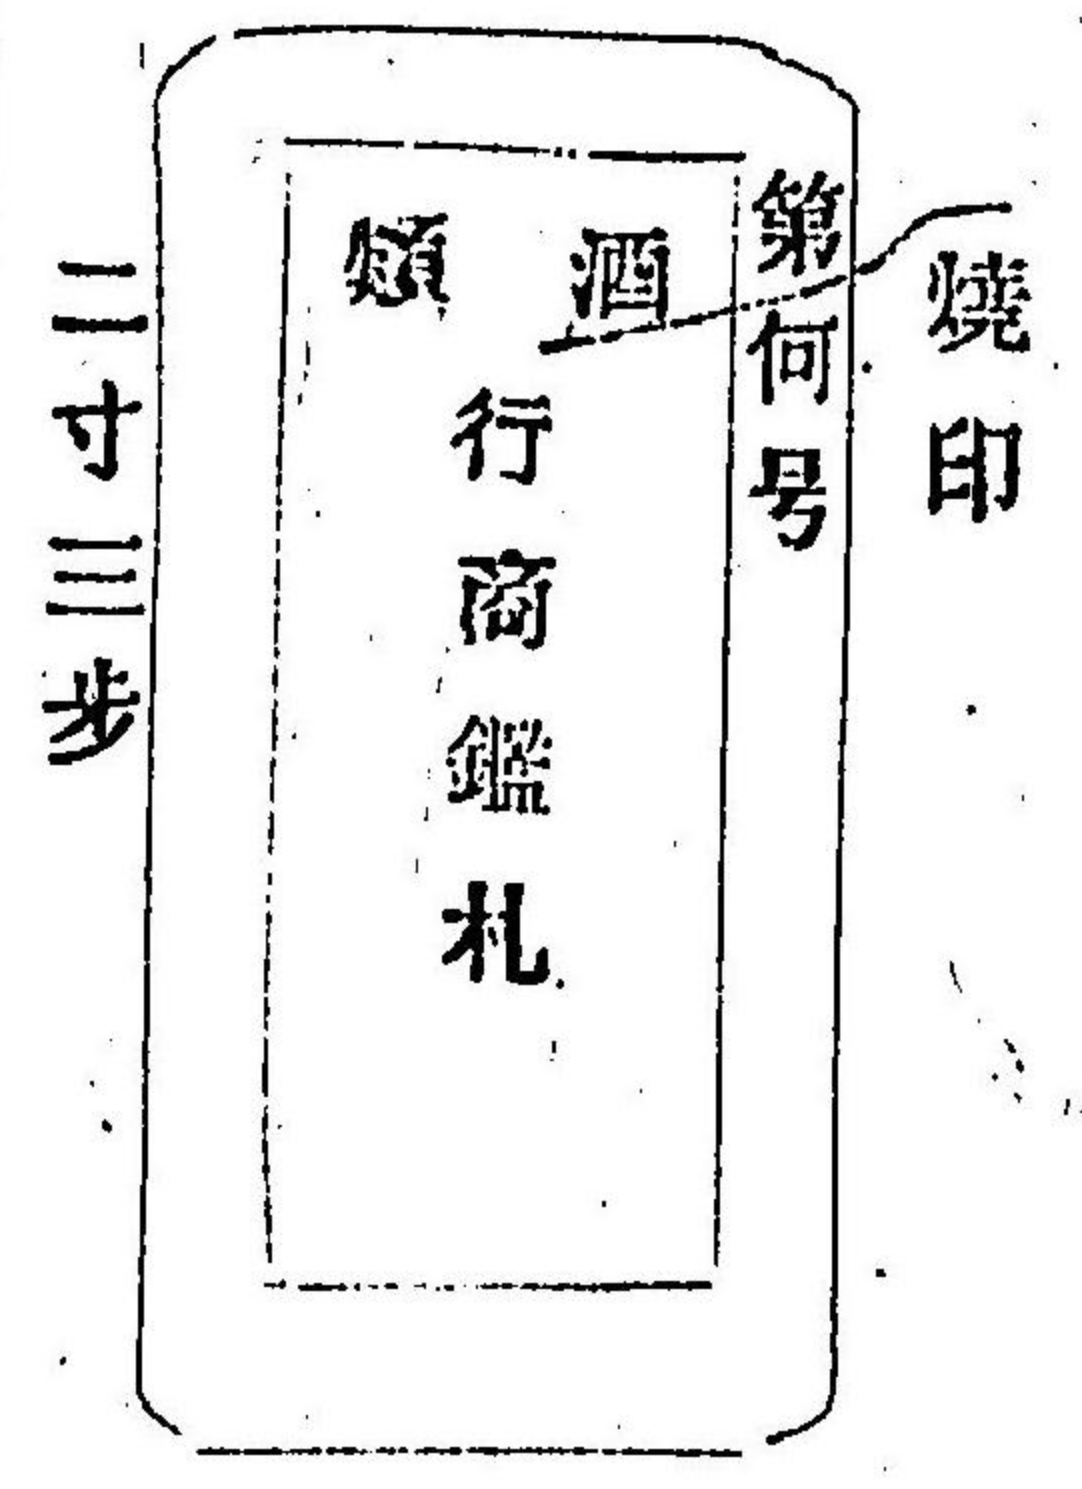 燒印
第何号
酒類
行商鑑札
二寸三步